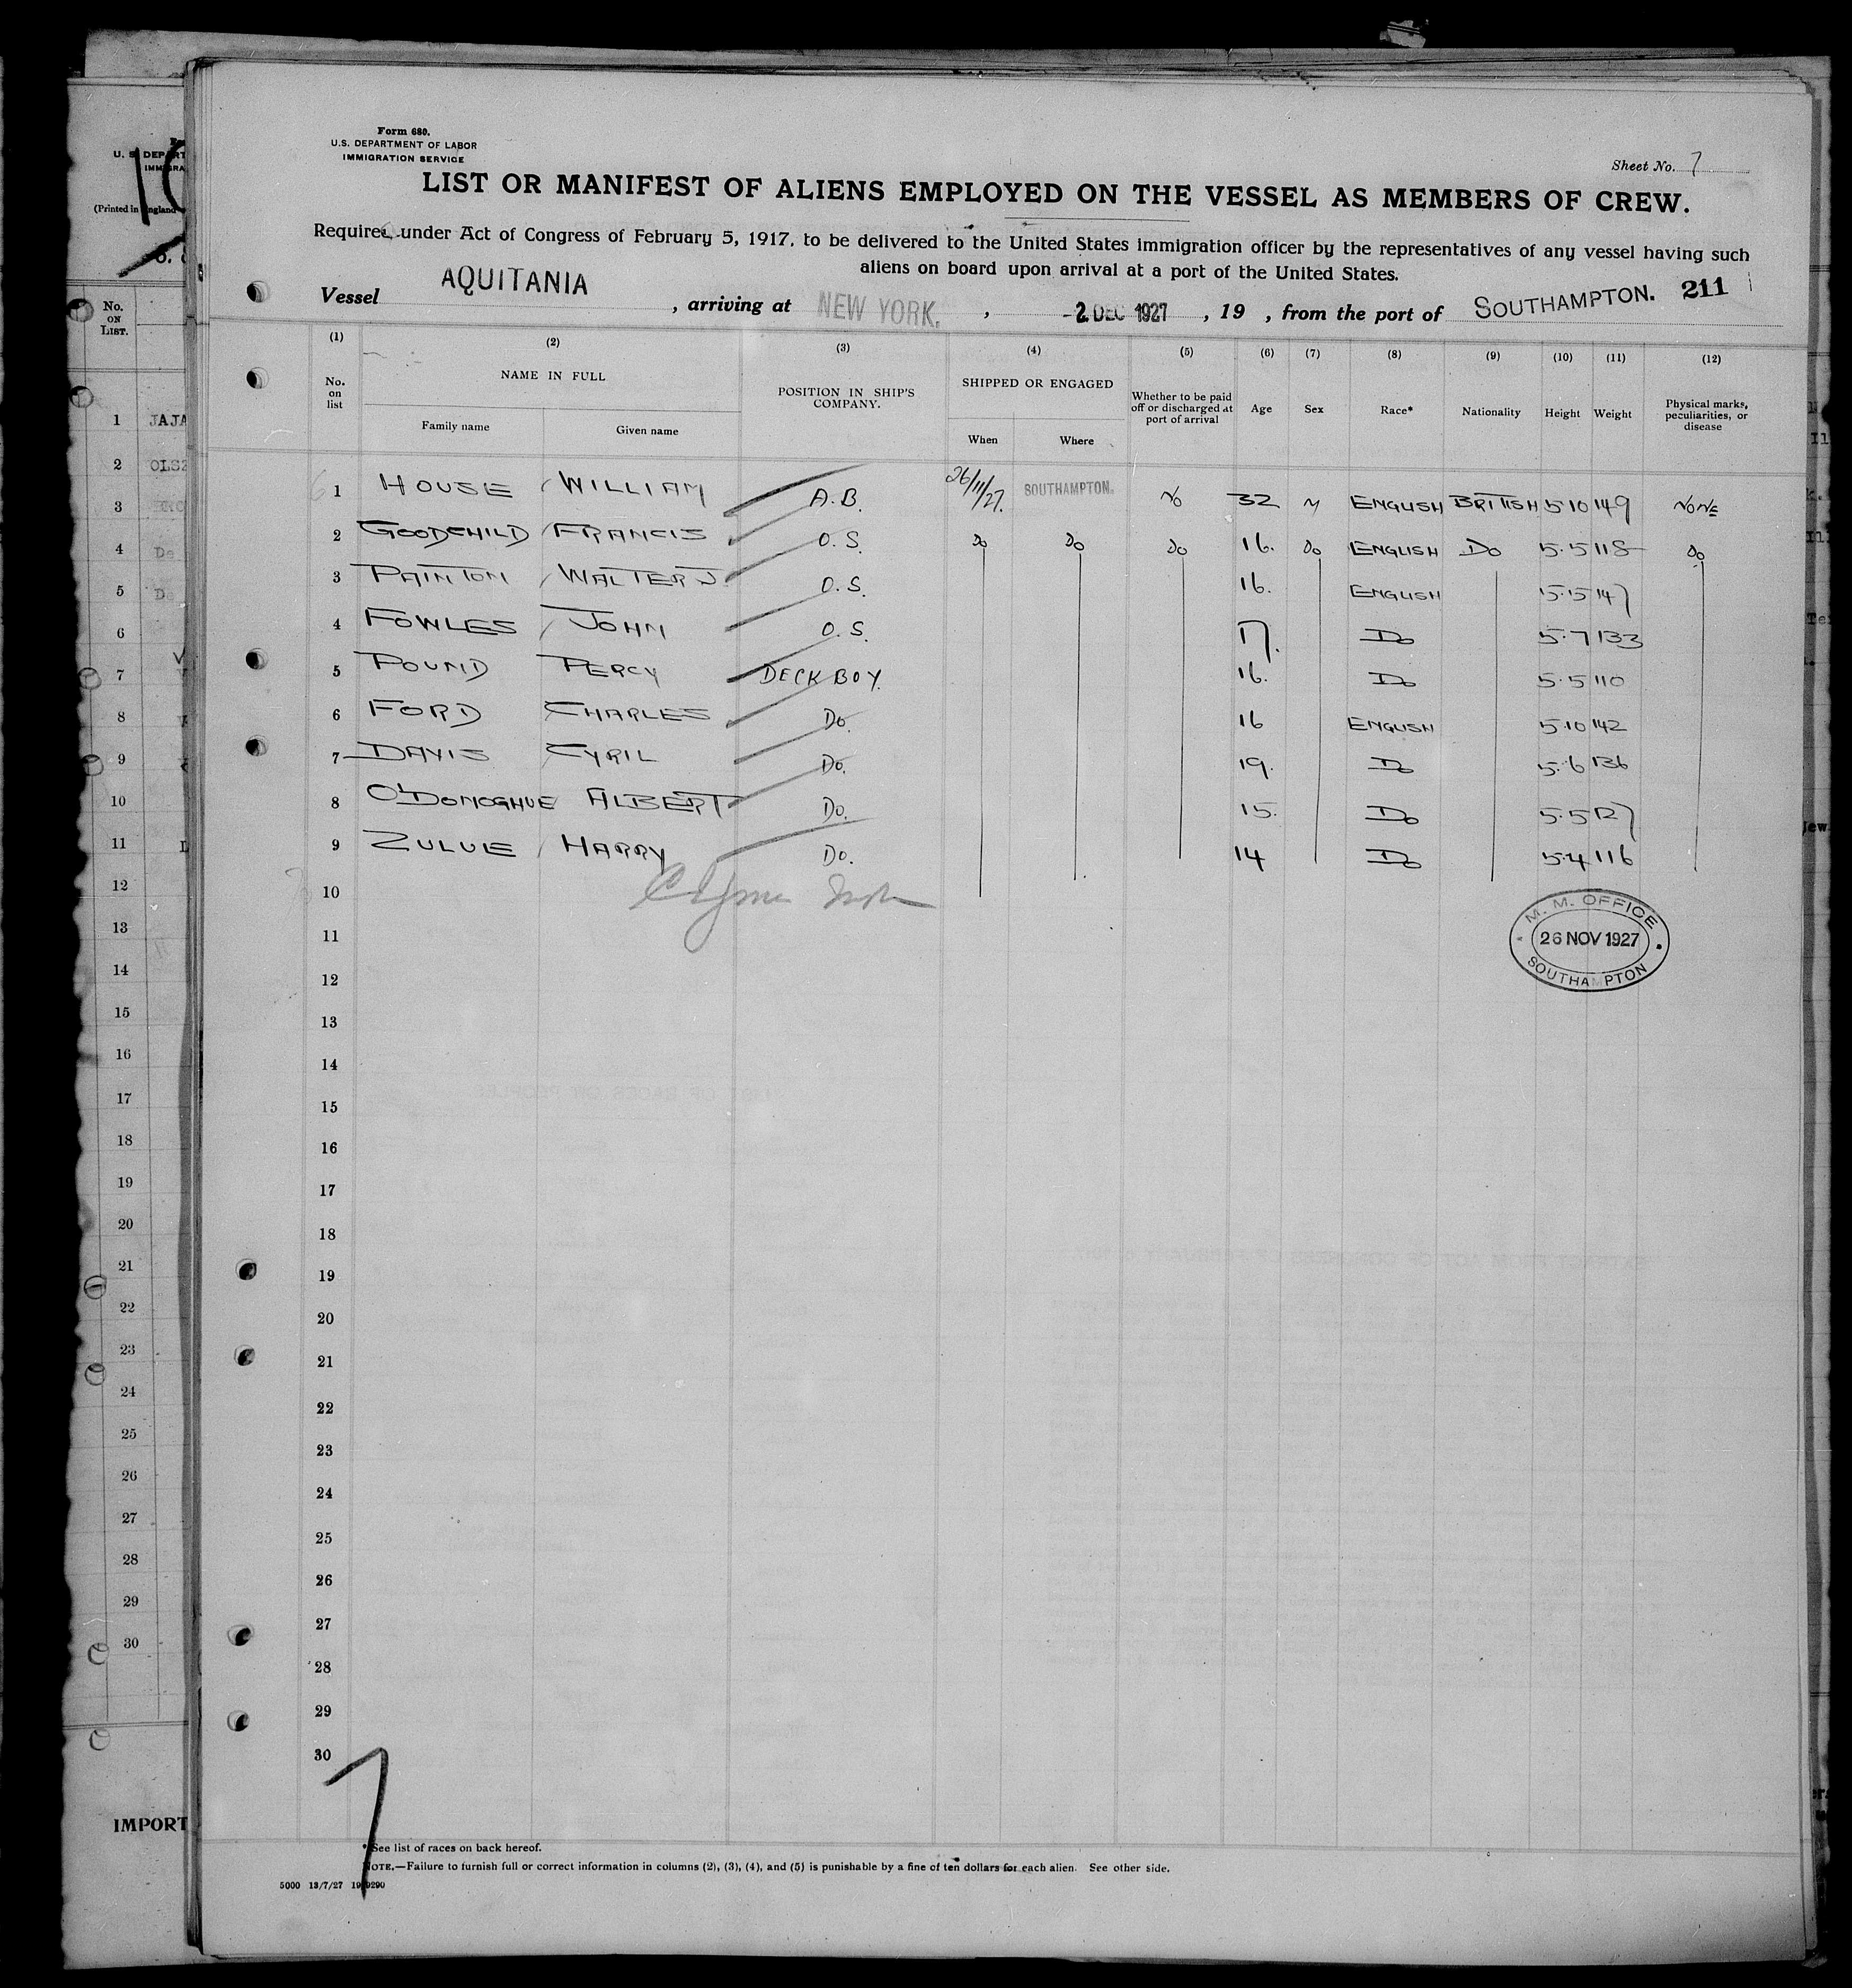 Form 680.
U.S. DEPARTMENT OF LABOR
IMMIGRATION SERVICE
Sheet No. 7
LIST OR MANIFEST OF ALIENS EMPLOYED ON THE VESSEL AS MEMBERS OF CREW.
Required under Act of Congress of February 5, 1917, to be delivered to the United States immigration officer by the representatives of any vessel having such
aliens on board upon arrival at a port of the United States.
Vessel AQUITANIA , arriving at NEW YORK. , -2 DEC 1927 , 19 , from the port of SOUTHAMPTON. 211
(1) (2) (3) (4) (5) (6) (7) (8) (9) (10) (11) (12)
No. on list NAME IN FULL Family name Given name POSITION IN SHIP'S COMPANY. SHIPPED OR ENGAGED When Where Whether to be paid off or discharged at port of arrival Age Sex Race* Nationality Height Weight Physical marks, peculiarities, or disease
1 HOUSE WILLIAM A.B. 26/11/27. SOUTHAMPTON. No 32 M ENGLISH BRITISH 5.10 149 NONE
2 GOODCHILD FRANCIS O.S. Do Do Do 16. Do ENGLISH Do 5.5 118 Do
3 PAINTON WALTER J. O.S. 16. ENGLISH 5.5 147
4 FOWLES JOHN O.S. 17. Do 5.7 133
5 POUND PERCY DECK BOY. 16. Do 5.5 110
6 FORD CHARLES Do. 16 ENGLISH 5.10 142
7 DAVIS CYRIL Do. 19. Do 5.6 136
8 O'DONOGHUE ALBERT Do. 15. Do 5.5 127
9 ZULUE HARRY Do. 14 Do 5.4 116
10
11
M. M. OFFICE
26 NOV 1927
SOUTHAMPTON
12
13
14
15
16
17
18
19
20
21
22
23
24
25
26
27
28
29
30
7
* See list of races on back hereof.
NOTE.—Failure to furnish full or correct information in columns (2), (3), (4), and (5) is punishable by a fine of ten dollars for each alien. See other side.
5000 13/7/27
(Printed in England
No.
ON
LIST.
1 JAJA
2 OLSZ
3
4 De
5 De
6
7
8
9
10
11
12
13
14
15
16
17
18
19
20
21
22
23
24
25
26
27
28
29
30
IMPORT